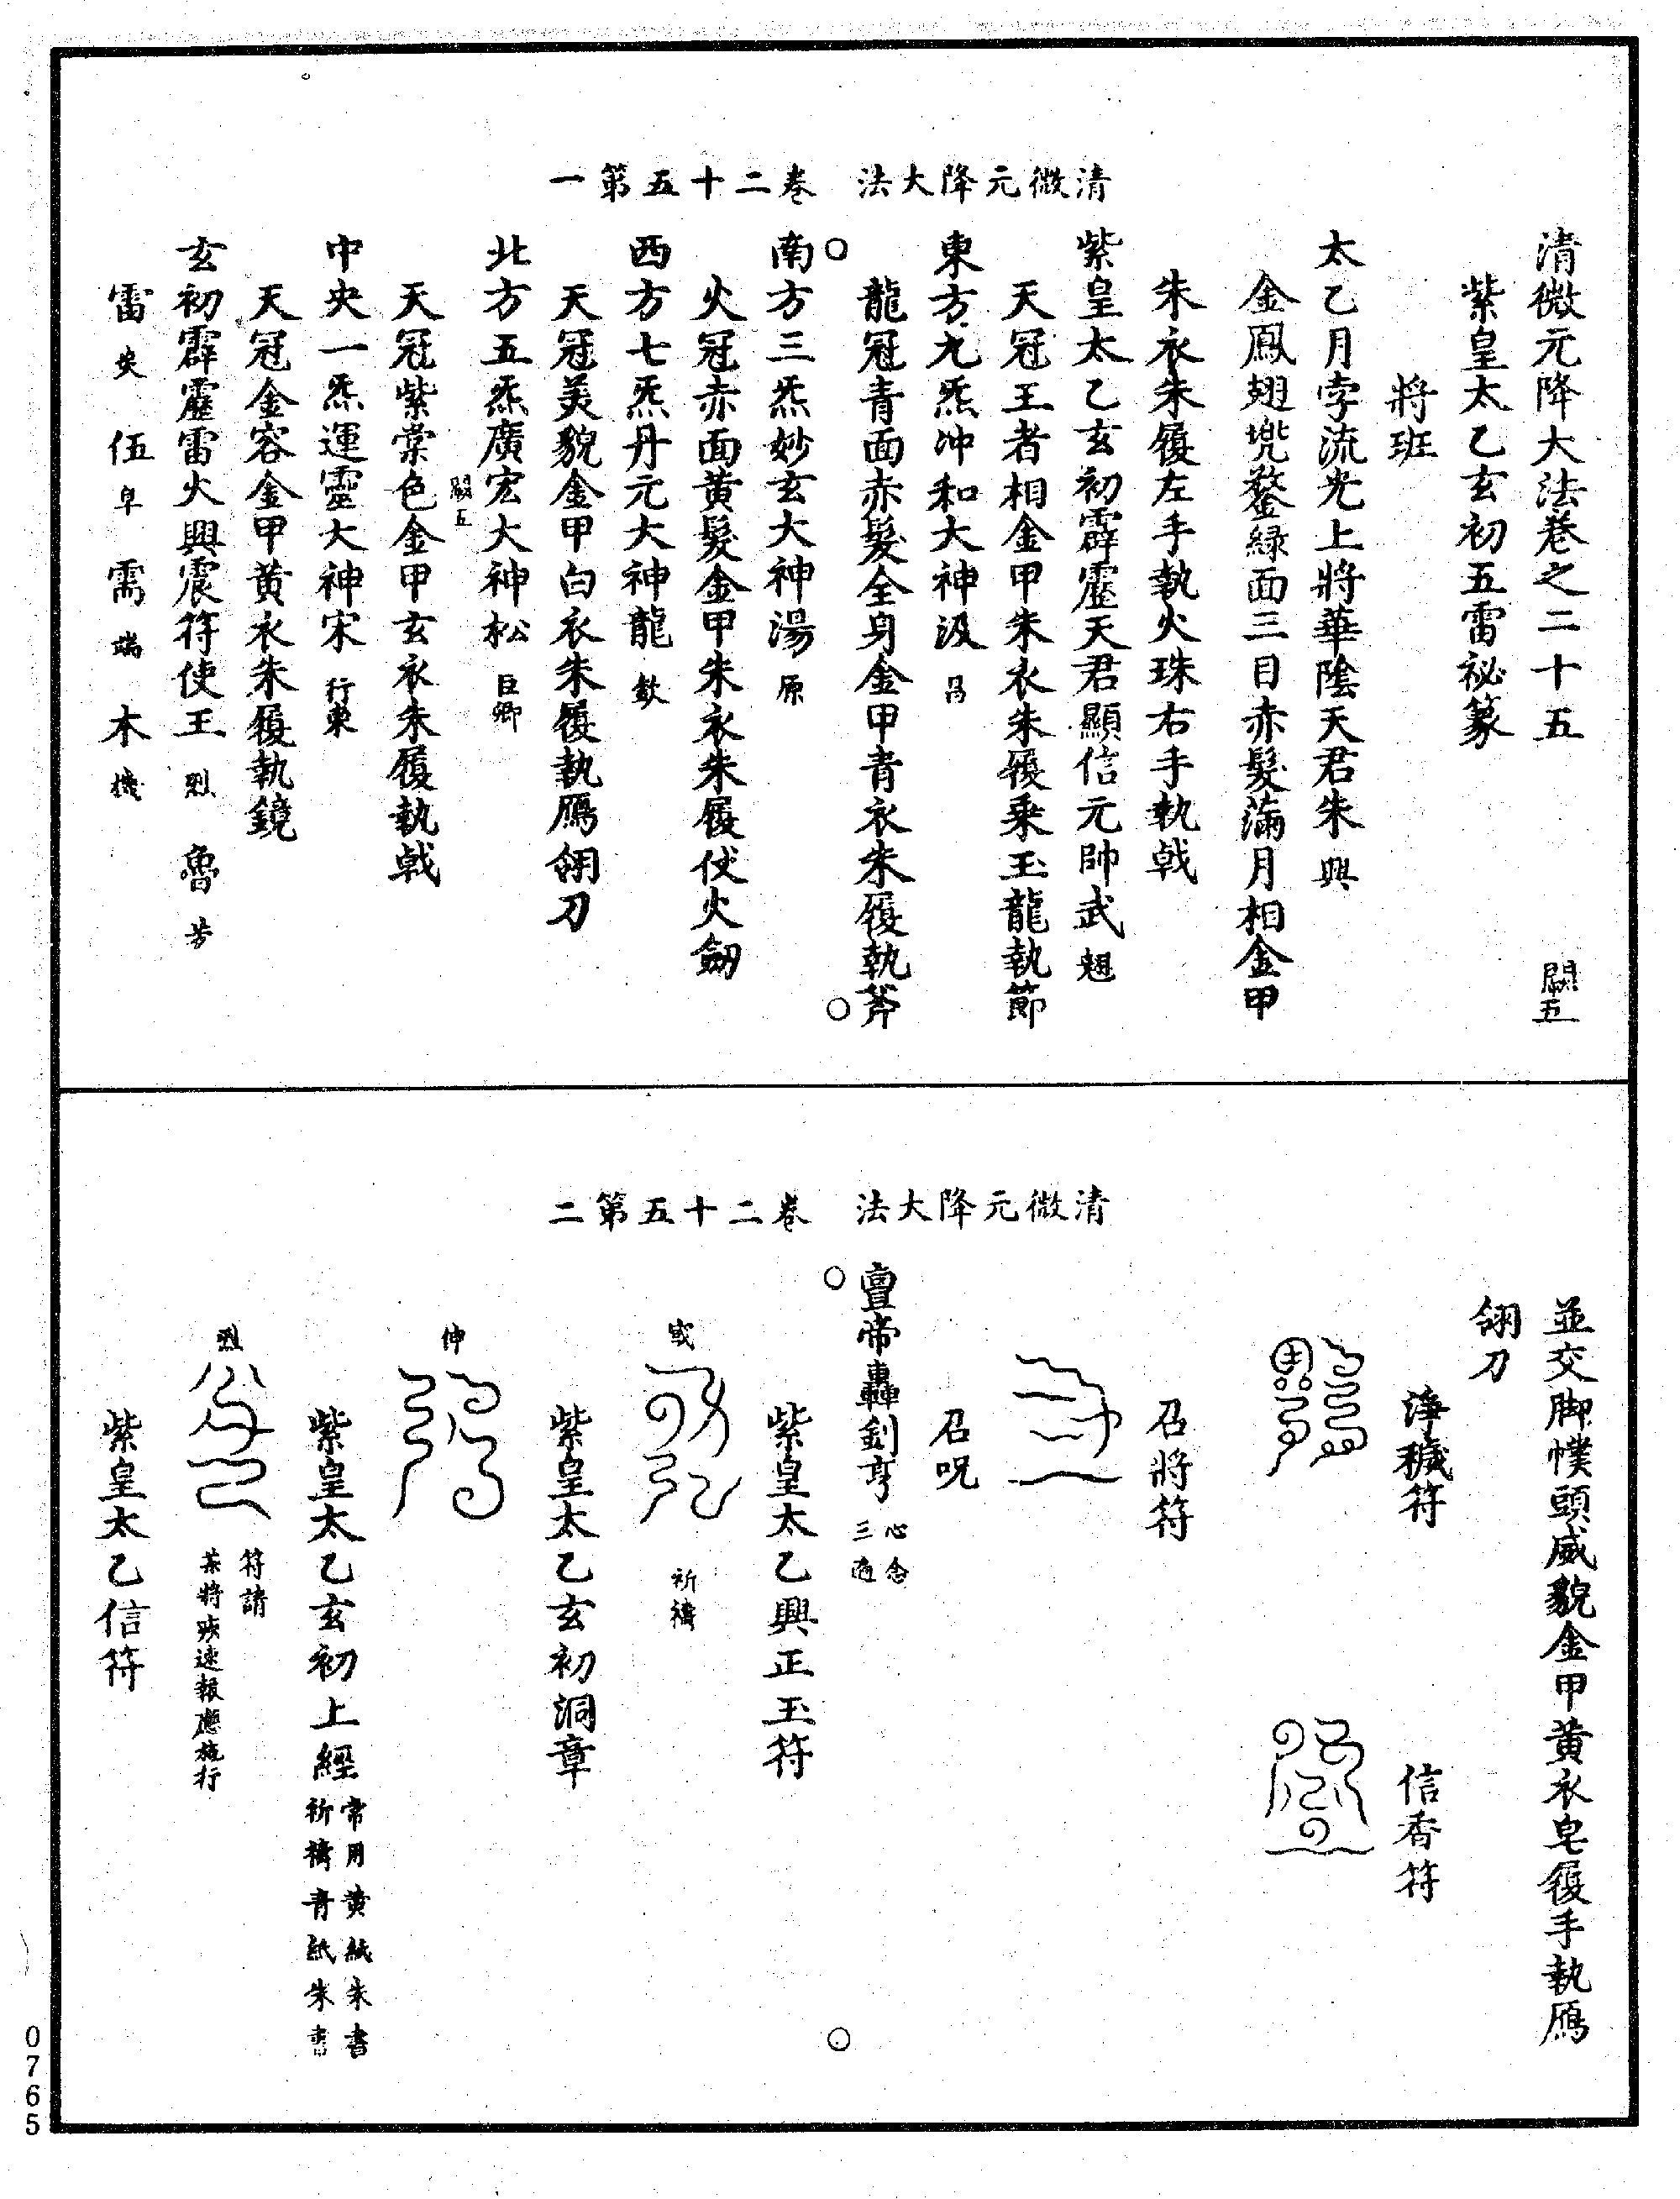 清微元降大法 卷二十五第一
清微元降大法卷之二十五 闕五
紫皇太乙玄初五雷祕篆
將班
太乙月孛流光上將華陰天君朱興
金鳳翅兜鍪綠面三目赤髮滿月相金甲
朱衣朱履左手執火珠右手執戟
紫皇太乙玄初霹靂天君顯信元帥武
天冠王者相金甲朱衣朱履乘玉龍執節
東方九炁沖和大神汲昌
龍冠青面赤髮全身金甲青衣朱履執斧
南方三炁妙玄大神湯原
火冠赤面黃髮金甲朱衣朱履仗火劒
西方七炁丹元大神龍歘
天冠美貌金甲白衣朱履執鴈翎刀
北方五炁廣宏大神松巨卿
闕五
天冠紫棠色金甲玄衣朱履執戟
中央一炁運靈大神宋行東
天冠金容金甲黃衣朱履執鏡
玄初霹靂雷火興震符使王烈 魯芳
雷 伍 需端 木機
清微元降大法 卷二十五第二
並交脚幞頭威貌金甲黃衣皂履手執鴈
翎刀
淨穢符 信香符
召將符
召呪
亶帝轟釗亨 心念三遍
紫皇太乙興正玉符
祈禱
紫皇太乙玄初洞章
伸
紫皇太乙玄初上經 常用黃紙朱書祈禱青紙朱書
烈
符請某將疾速報應施行
紫皇太乙信符
0765